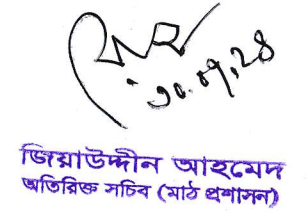 ৩০.০৭.২৪
জিয়াউদ্দীন আহমেদ
অতিরিক্ত সচিব (মাঠ প্রশাসন)